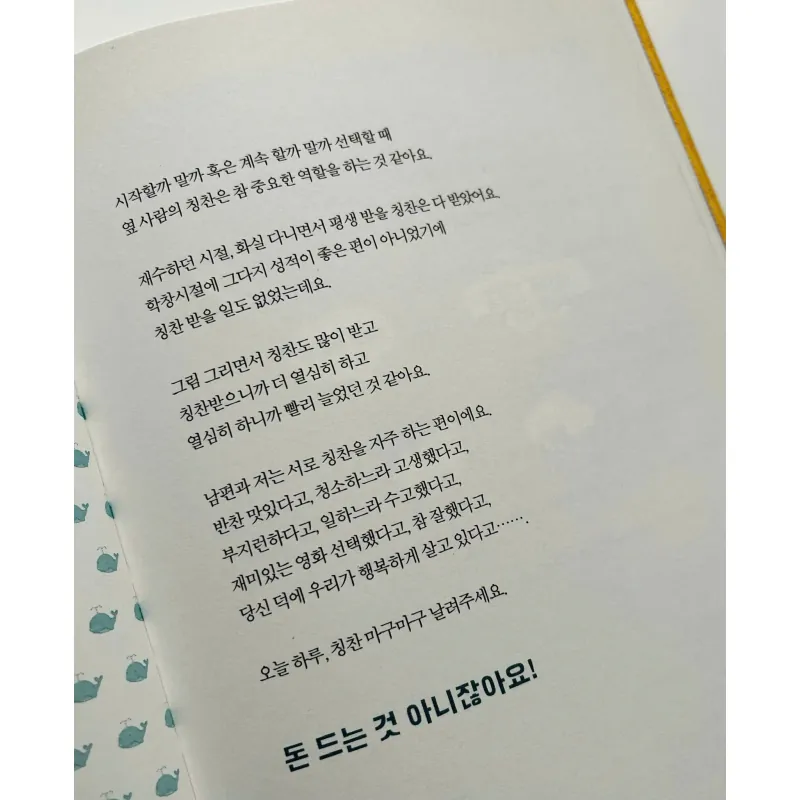 시작할까 말까 혹은 계속 할까 말까 선택할 때
옆 사람의 칭찬은 참 중요한 역할을 하는 것 같아요.
재수하던 시절, 화실 다니면서 평생 받을 칭찬은 다 받았어요.
학창시절에 그다지 성적이 좋은 편이 아니었기에
칭찬 받을 일도 없었는데요.
그림 그리면서 칭찬도 많이 받고
칭찬받으니까 더 열심히 하고
열심히 하니까 빨리 늘었던 것 같아요.
남편과 저는 서로 칭찬을 자주 하는 편이에요.
반찬 맛있다고, 청소하느라 고생했다고,
부지런하다고, 일하느라 수고했다고,
재미있는 영화 선택했다고, 참 잘했다고,
당신 덕에 우리가 행복하게 살고 있다고…….
오늘 하루, 칭찬 마구마구 날려주세요.
돈 드는 것 아니잖아요!